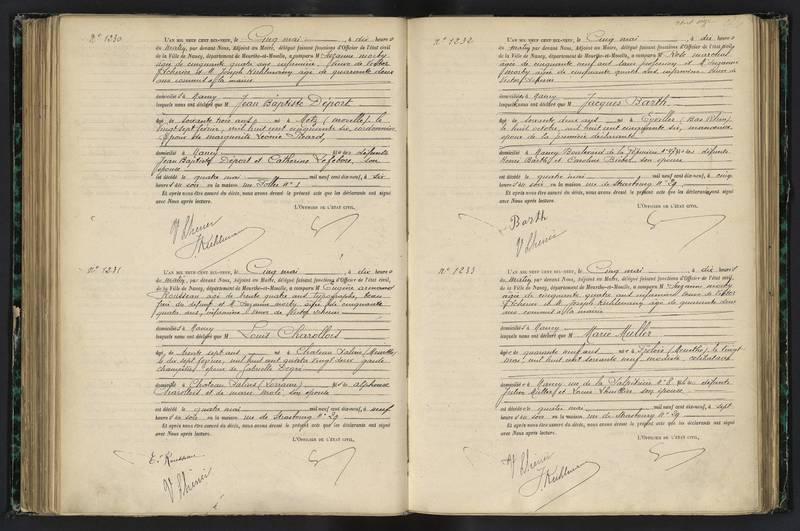 N° 1230
L'AN MIL NEUF CENT DIX-NEUF, le Cinq mai à dix heures
du matin, par devant Nous, Adjoint au Maire, délégué faisant fonctions d'Officier de l'état civil
de la Ville de Nancy, département de Meurthe-et-Moselle, a comparu M Suzanne
âgée de cinquante quatre ans infirmière veuve de Victor
et M Joseph Kuhlmann âgé de quarante deux
ans commis à la mairie
domiciliés à Nancy
lesquels nous ont déclaré que M Jean Baptiste Déport
âgé de soixante trois ans né à Metz (Moselle) le
vingt sept février mil huit cent cinquante six, cordonnier
époux de Marguerite Léonie Picard,
domicilié à Nancy fils de défunts
Jean Baptiste Déport et Catherine Lefebvre, son
épouse
est décédé le quatre mai mil neuf cent dix-neuf, à six
heures du soir en la maison rue Foller N° 1
Et après nous être assuré du décès, nous avons dressé le présent acte que les déclarants ont signé
avec Nous après lecture.
L'OFFICIER DE L'ÉTAT CIVIL,
J. Kuhlmann
N° 1231
L'AN MIL NEUF CENT DIX-NEUF, le Cinq mai à dix heures
du matin, par devant Nous, Adjoint au Maire, délégué faisant fonctions d'Officier de l'état civil,
de la Ville de Nancy, département de Meurthe-et-Moselle, a comparu M Eugène Armand
Rousseau âgé de trente quatre ans typographe, beau
frère du défunt et M Suzanne âgée de cinquante
quatre ans, infirmière veuve de Victor
domiciliés à Nancy
lesquels nous ont déclaré que M Louis Charollois
âgé de trente sept ans né à Château Salins (Meurthe)
le dix sept février mil huit cent quatre vingt deux garde
champêtre époux de Gabrielle
domicilié à Château Salins (Lorraine) fils de Alphonse
Charollois et de Marie son épouse
est décédé le quatre mai mil neuf cent dix-neuf, à neuf
heures du soir en la maison rue de Strasbourg N° 29
Et après nous être assuré du décès, nous avons dressé le présent acte que les déclarants ont signé
avec Nous après lecture.
L'OFFICIER DE L'ÉTAT CIVIL,
E. Rousseau
N° 1232
L'AN MIL NEUF CENT DIX-NEUF, le Cinq mai à dix heures
du matin, par devant Nous, Adjoint au Maire, délégué faisant fonctions d'Officier de l'état civil
de la Ville de Nancy, département de Meurthe-et-Moselle, a comparu M
âgée de cinquante neuf ans sans profession et M Suzanne
âgée de cinquante quatre ans infirmière veuve de
Victor
domiciliés à Nancy
lesquels nous ont déclaré que M Jacques Barth
âgé de soixante deux ans né à (Bas Rhin)
le huit octobre mil huit cent cinquante six, manœuvre
époux de la première déclarante
domicilié à Nancy Boulevard de la fils de défunts
Henri Barth et Caroline son épouse
est décédé le quatre mai mil neuf cent dix-neuf, à cinq
heures du soir en la maison rue de Strasbourg N° 29
Et après nous être assuré du décès, nous avons dressé le présent acte que les déclarants ont signé
avec Nous après lecture.
L'OFFICIER DE L'ÉTAT CIVIL,
Barth
N° 1233
L'AN MIL NEUF CENT DIX-NEUF, le Cinq mai à dix heures
du matin, par devant Nous, Adjoint au Maire, délégué faisant fonctions d'Officier de l'état civil,
de la Ville de Nancy, département de Meurthe-et-Moselle, a comparu M Suzanne
âgée de cinquante quatre ans infirmière veuve de Victor
et M Joseph Kuhlmann âgé de quarante deux
ans commis à la mairie
domiciliés à Nancy
lesquels nous ont déclaré que M Marie Muller
âgée de quarante neuf ans née à (Meurthe) le vingt
mai mil huit cent soixante neuf modiste célibataire
domiciliée à Nancy rue de la N° 8 fille de défunts
Julien Muller et Louise son épouse
est décédée le quatre mai mil neuf cent dix-neuf, à sept
heures du soir en la maison rue de Strasbourg N° 29
Et après nous être assuré du décès, nous avons dressé le présent acte que les déclarants ont signé
avec Nous après lecture.
L'OFFICIER DE L'ÉTAT CIVIL,
J. Kuhlmann